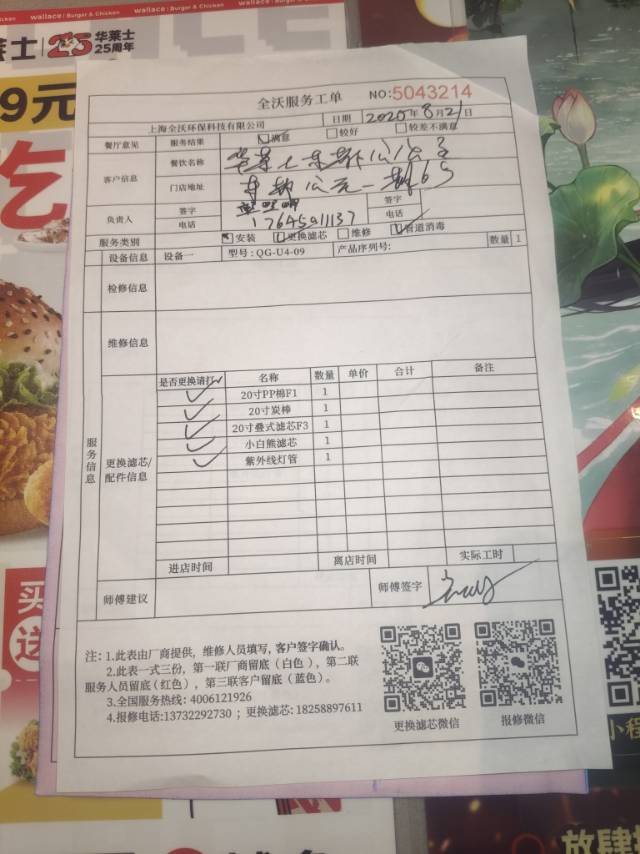 华莱士
25 华莱士 25周年
wallace: Burger & Chicken
9元
吃
全沃服务工单 NO:5043214
上海全沃环保科技有限公司 日期 2025年8月21日
餐厅意见 服务结果 满意 较好 较差不满意
客户信息 餐饮名称
门店地址
负责人 签字 签字
电话 17645911137 电话
服务类别 安装 更换滤芯 维修 管道消毒
设备信息 设备一 型号: QG-U4-09 产品序列号: 数量 1
检修信息
维修信息
服务信息
更换滤芯/配件信息
是否更换请打✓ 名称 数量 单价 合计 备注
✓ 20寸PP棉F1 1
✓ 20寸炭棒 1
✓ 20寸叠式滤芯F3 1
✓ 小白熊滤芯 1
✓ 紫外线灯管 1
进店时间 离店时间 实际工时
师傅建议 师傅签字
注: 1.此表由厂商提供, 维修人员填写, 客户签字确认。
2.此表一式三份, 第一联厂商留底 (白色), 第二联
服务人员留底 (红色), 第三联客户留底 (蓝色)。
3.全国服务热线: 4006121926
4.报修电话:13732292730 ; 更换滤芯: 18258897611
更换滤芯微信
报修微信
买
送
小程
放肆